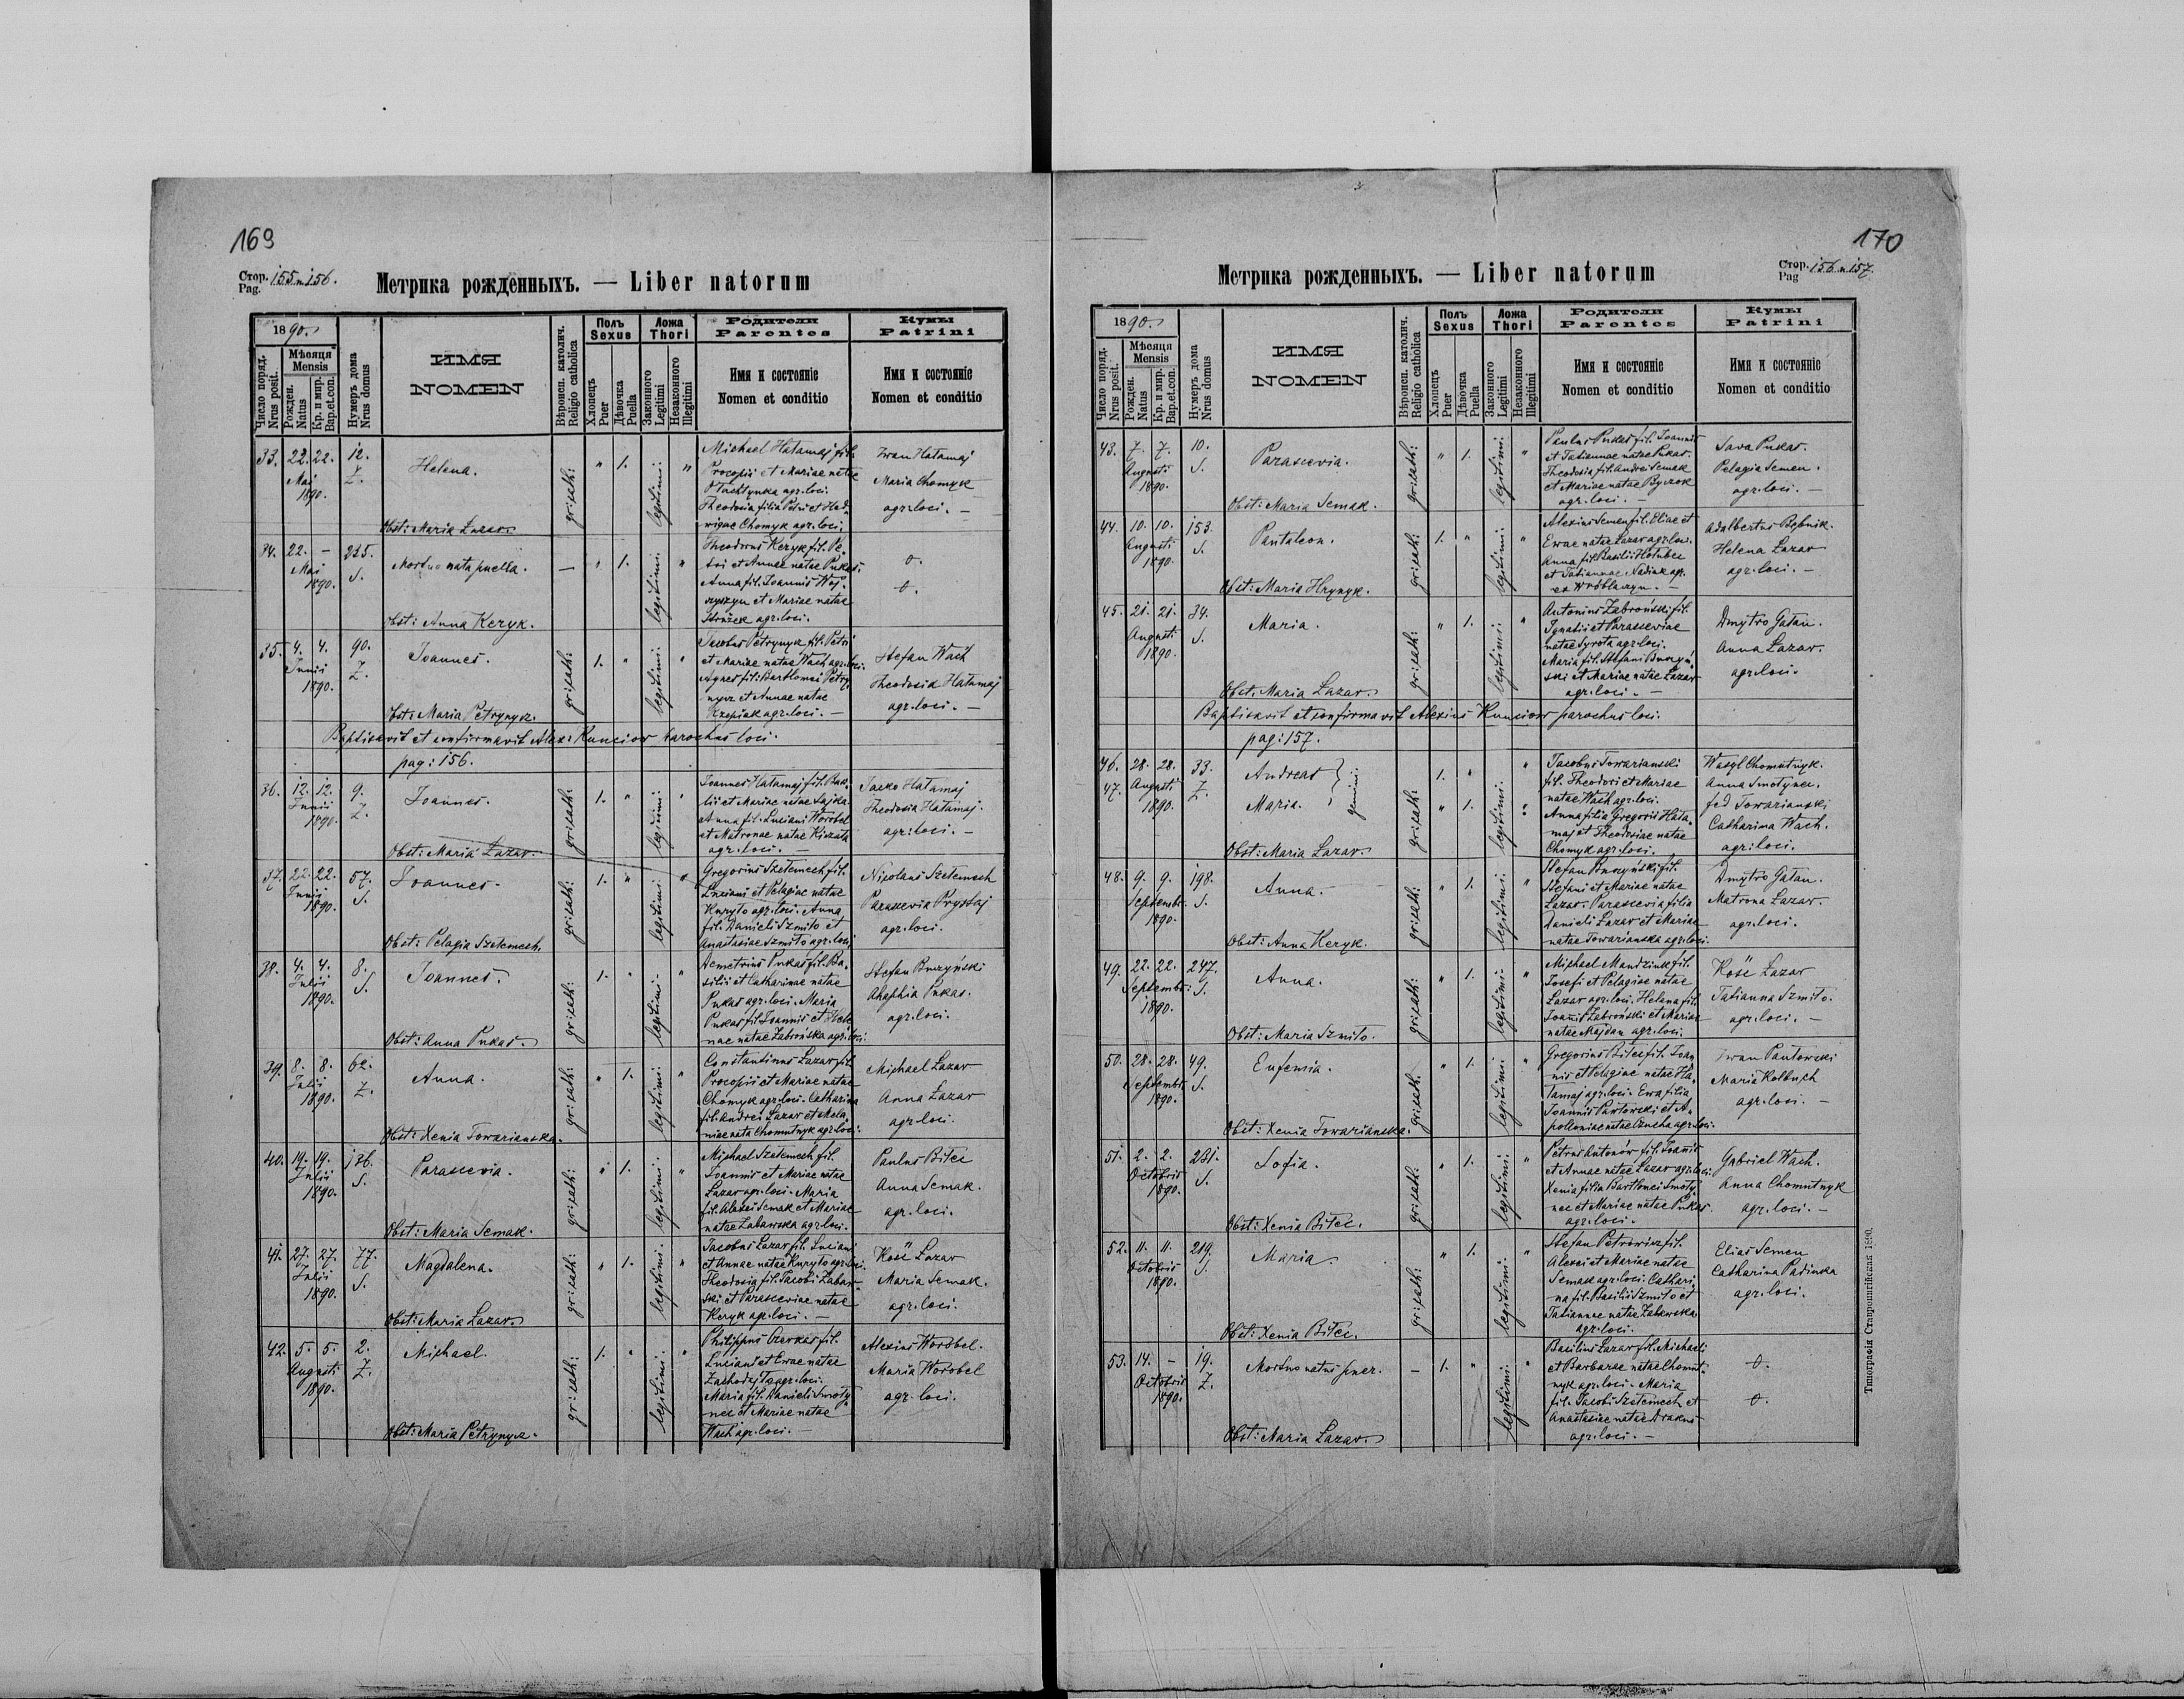 169
Стор. Pag. 155 n 156.
Метрика рожденныхъ. — Liber natorum
1890.
Число поряд. Nrus posit.
Мѣсяця Mensis
Рожден. Natus
Кр. и мир. Bap.et.con.
Нумеръ дома Nrus domus
ИМЯ NOMEN
Вѣроисп. католич. Religio catholica
Полъ Sexus
Хлопецъ Puer
Дѣвочка Puella
Ложа Thori
Законного Legitimi
Незаконного Illegitimi
Родители Parentes
Имя и состояніе Nomen et conditio
Кумы Patrini
Имя и состояніе Nomen et conditio
33. 22. 22. Maj 1890. 12. Z.
Helena.
gr: cath: " 1. legitimi: "
Michael Hatamaj fil.
Procopii et Mariae natae
agr. loci.
Theodosia filia Petri et Had-
wigae Chomyk agr. loci.
Iwan Hatamaj
Maria Chomyk
agr. loci. —
Obst: Maria Lazar.
34. 22. — Maj 1890. 225. S.
Mortuo nata puella.
— " 1. legitimi: "
Theodorus Keryk fil. Pe-
tri et Annae natae Pukas
Anna fil. Joannis Woj-
et Mariae natae
agr. loci.
0.
0.
Obst: Anna Keryk.
35. 4. 4. Junii 1890. 90. Z.
Joannes.
gr: cath: 1. " legitimi: "
Jacobus Petrynycz fil. Petri
et Mariae natae Wach agr. loci.
Agnes fil: Bartlomei Petry-
nycz et Annae natae
Rzepiak agr. loci. —
Stefan Wach
Theodosia Hatamaj
agr. loci. —
Obst: Maria Petrynycz.
Baptisavit et confirmavit Alex: Kunciow parochus loci.
pag: 156.
36. 12. 12. Junii 1890. 9. Z.
Joannes.
gr: cath: 1. " legitimi: "
Joannes Hatamaj fil. Basi-
lii et Mariae natae Sajka.
Anna fil. Luciani Worobel
et Matronae natae
agr. loci. —
Jacko Hatamaj
Theodosia Hatamaj.
agr. loci. —
Obst: Maria Lazar.
37. 22. 22. Junii 1890. 57. S.
Joannes.
gr: cath: 1. " legitimi: "
Gregorius Szetemech fil.
Luciani et Pelagiae natae
Kuryto agr. loci. Anna
fil. Danieli Szmito et
Anastasiae Szmito agr. loci.
Nicolaus Szetemech
Parascevia Prystaj
agr. loci.
Obst: Pelagia Szetemech.
38. 4. 4. Julii 1890. 8. S.
Joannes.
gr: cath: 1. " legitimi: "
Demetrius Pukas fil. Ba-
silii et Catharinae natae
Pukas agr. loci. Maria
Pukas fil. Joannis et Hele-
nae natae Zabrońska agr. loci.
Stefan Buczyński
Ahaphia Pukas.
agr. loci.
Obst: Anna Pukas.
39. 8. 8. Julii 1890. 62. Z.
Anna.
gr: cath: " 1. legitimi: "
Constantinus Lazar fil.
Procopii et Mariae natae
Chomyk agr. loci. Catharina
fil. Andrei Lazar et Mela-
niae nata Chomutnyk agr. loci.
Michael Lazar
Anna Lazar
agr. loci.
Obst: Xenia Towarianska.
40. 19. 19. Julii 1890. 136. S.
Parascevia.
gr: cath: " 1. legitimi: "
Michael Szetemech fil.
Joannis et Mariae natae
Lazar agr. loci. Maria
fil. Alexii Semak et Mariae
natae Zabawska agr. loci.
Paulus Bitec
Anna Semak.
agr. loci.
Obst: Maria Semak.
41. 27. 27. Julii 1890. 77. S.
Magdalena.
gr: cath: " 1. legitimi: "
Jacobus Lazar fil. Luciani
et Annae natae Kuryto agr. loci.
Theodosia fil. Jacobi Zabaw-
ski et Parasceviae natae
Keryk agr. loci. —
Kość Lazar
Maria Semak.
agr. loci.
Obst: Maria Lazar.
42. 5. 5. Augusti 1890. 2. Z.
Michael.
gr: cath: 1. " legitimi: "
Philippus Czerkas fil.
Luciani et Ewae natae
agr. loci.
Maria fil. Danieli Smoty-
nec et Mariae natae
Wach agr. loci. —
Alexius Worobel.
Maria Worobel
agr. loci.
Obst: Maria Petrynycz.
170
Стор. Pag 156 n 157.
Метрика рожденныхъ. — Liber natorum
1890.
Число поряд. Nrus posit.
Мѣсяця Mensis
Рожден. Natus
Кр. и мир. Bap.et.con.
Нумеръ дома Nrus domus
ИМЯ NOMEN
Вѣроисп. католич. Religio catholica
Полъ Sexus
Хлопецъ Puer
Дѣвочка Puella
Ложа Thori
Законного Legitimi
Незаконного Illegitimi
Родители Parentes
Имя и состояніе Nomen et conditio
Кумы Patrini
Имя и состояніе Nomen et conditio
43. 7. 7. Augusti 1890. 10. S.
Parascevia.
gr: cath: " 1. legitimi: "
Paulus Pukas fil. Joannis
et Tatiannae natae Pukas.
Theodosia fil. Andrei Semak
et Mariae natae Byczok
agr. loci. —
Sava Pukas.
Pelagia Semen.
agr. loci. —
Obst: Maria Semak.
44. 10. 10. Augusti 1890. 153. S.
Pantaleon.
gr: cath: 1. " legitimi: "
Alexius Semen fil. Eliae et
Ewae natae Lazar agr. loci.
Anna fil. Basilii Hotubec
et Tatiannae Nadiak agr.
ex Wróblaczyn. —
Adalbertus Bębnik.
Helena Lazar
agr. loci. —
Obst: Maria Hrynyk.
45. 21. 21. Augusti 1890. 34. S.
Maria.
gr: cath: " 1. legitimi: "
Antonius Zabroński fil.
Ignatii et Parasceviae
natae Syrota agr. loci.
Maria fil. Stefani Buczyń-
ski et Mariae natae Lazar
agr. loci. —
Dmytro Gatan.
Anna Lazar.
agr. loci.
Obst: Maria Lazar.
Baptisavit et confirmavit Alexius Kunciow parochus loci.
pag: 157.
46. 28. 28. 33.
47. Augusti 1890. Z.
Andreas
Maria.
gemini
gr: cath: 1. " legitimi: "
" 1. "
Jacobus Towarianski
fil. Theodori et Mariae
natae Wach agr. loci.
Anna filia Gregorii Hata-
maj et Theodosiae natae
Chomyk agr. loci.
Wasyl Chomutnyk.
Anna Smotynec.
Fed Towarianski
Catharina Wach.
agr: loci.
Obst: Maria Lazar.
48. 9. 9. Septembr. 1890. 198. S.
Anna.
gr: cath: " 1. legitimi: "
Stefan Buczyński fil.
Stefani et Mariae natae
Lazar. Parascevia filia
Danieli Lazar et Mariae
natae Towarianska agr. loci.
Dmytro Gatan.
Matrona Lazar.
agr. loci.
Obst: Anna Keryk.
49. 22. 22. Septembr. 1890. 247. S.
Anna.
gr: cath: " 1. legitimi: "
Michael Mandziuk fil.
Josefi et Pelagiae natae
Lazar agr. loci. Helena fil.
Joannis Zabroński et Mariae
natae Majdan agr. loci.
Kość Lazar
Tatianna Szmito.
agr. loci. —
Obst: Maria Szmito.
50. 28. 28. Septembr. 1890. 49. S.
Eufemia.
gr: cath: " 1. legitimi: "
Gregorius Bitec fil. Joan-
nis et Pelagiae natae Ha-
tamaj agr. loci. Ewa filia
Joannis Pawtowski et A-
poloniae natae agr. loci.
Iwan Pawtowski
Maria Kolbuch
agr. loci. —
Obst: Xenia Towarianska.
51. 2. 2. Octobris 1890. 231. S.
Sofia.
gr: cath: " 1. legitimi: "
Petrus Antonów fil. Joannis
et Annae natae Lazar agr. loci.
Xenia filia Bartlomei Smoty-
nec et Mariae natae Pukas
agr. loci.
Gabriel Wach.
Anna Chomutnyk
agr. loci. —
Obst: Xenia Bitec.
52. 11. 11. Octobris 1890. 219. S.
Maria
gr: cath: " 1. legitimi: "
Stefan Petrowicz fil.
Alexii et Mariae natae
Semak agr. loci. Cathari-
na fil. Basilii Szmito et
Tatiannae natae Zabawska
agr. loci.
Elias Semen
Catharina Padinka
agr. loci.
Obst: Xenia Bitec.
53. 14. — Octobris 1890. 19. Z.
Mortuo natus puer.
— 1. " legitimi: "
Basilius Lazar fil. Michaeli
et Barbarae natae Chomut-
nyk agr. loci. Maria
fil. Jacobi Szetemech et
Anastasiae natae Drakus
agr. loci. —
0.
0.
Obst: Maria Lazar.
Типографія Ставропигійская 1890.